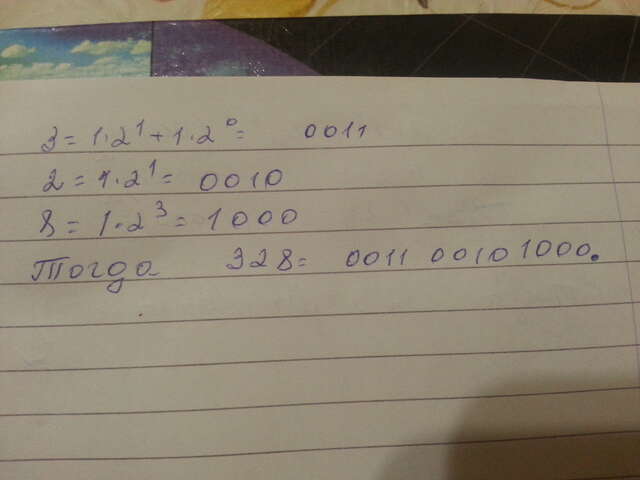 3 = 1·2¹ + 1·2⁰ = 0011
2 = 1·2¹ = 0010
8 = 1·2³ = 1000
Тогда 328 = 0011 0010 1000.